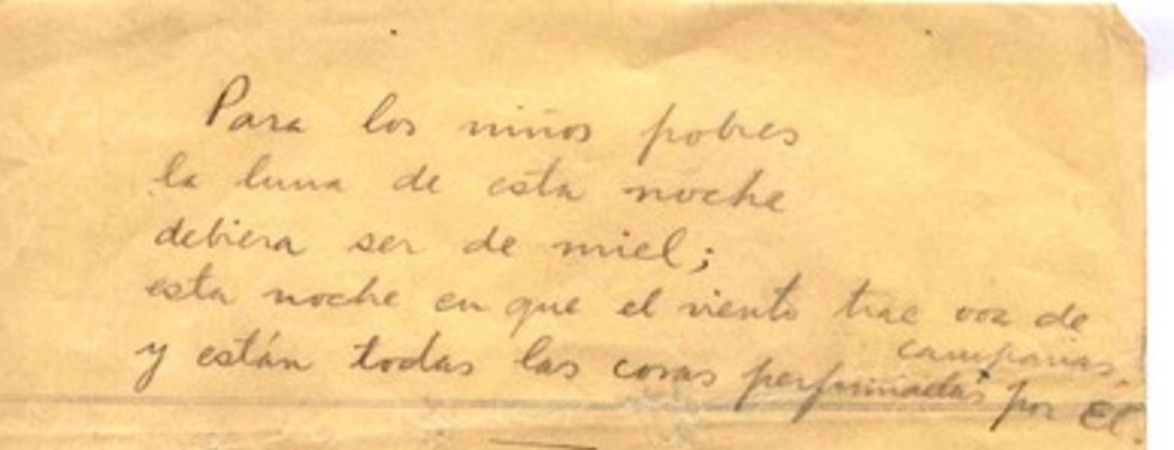 Para los niños pobres
la luna de esta noche
debiera ser de miel;
esta noche en que el viento trae voz de
campanas,
y están todas las cosas perfumadas por Él.